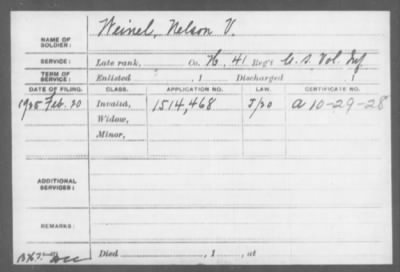 NAME OF SOLDIER: Weinel, Nelson V.
SERVICE: Late rank, Co. H, 41 Reg't U. S. Vol Inf
TERM OF SERVICE: Enlisted , 1 Discharged , 1
DATE OF FILING. CLASS. APPLICATION NO. LAW. CERTIFICATE NO.
1925 Feb. 20 Invalid, 1514,468 J/20 a 10-29-28
Widow,
Minor,
ADDITIONAL SERVICES:
REMARKS:
Died , 1 , at